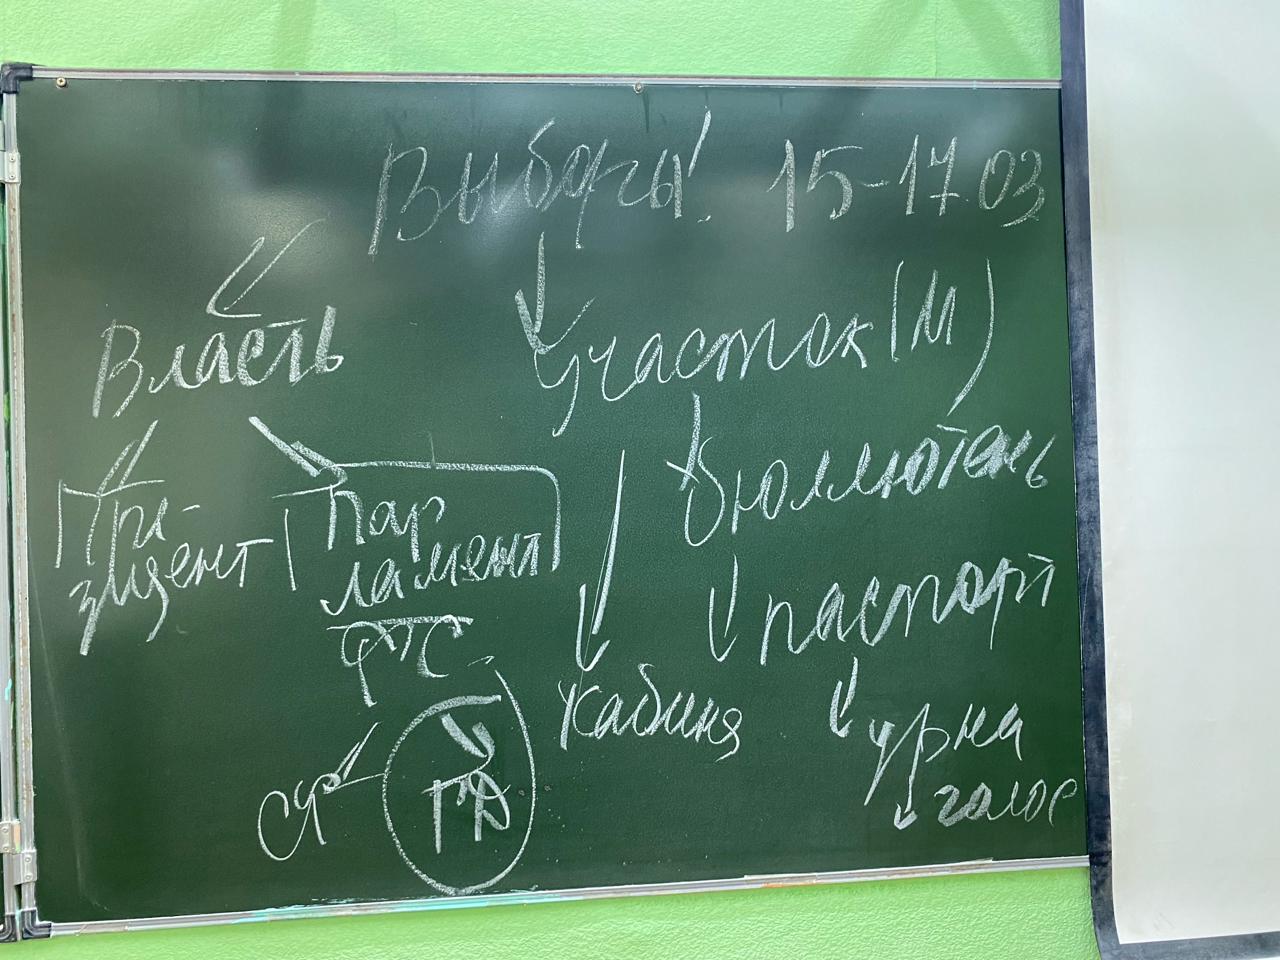 Выборы! 15-17.03
Власть
Участок (М)
Пре-
зидент
Пар
ламент
ФС
СФ
ГД
бюллютень
паспорт
кабина
урна
голос